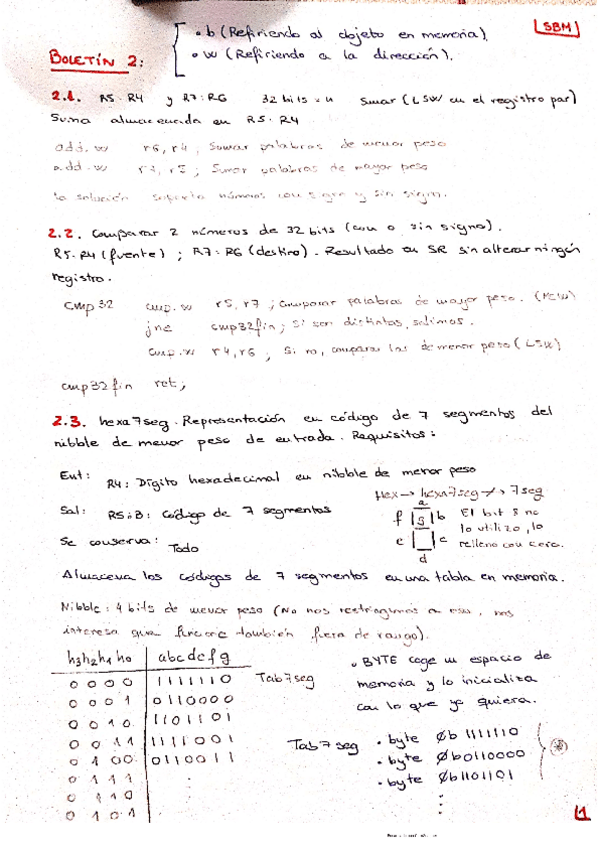 SBM
.b (Refiriendo al objeto en memoria).
.w (Refiriendo a la dirección).
BOLETÍN 2:
2.1. R5:R4 y R7:R6 32 bits Sumar (LSW en el registro par)
Suma almacenada en R5:R4
add.w r6, r4 ; Sumar palabras de menor peso
add.w r7, r5 ; Sumar palabras de mayor peso
La solución soporta números con signo y sin signo.
2.2. Comparar 2 números de 32 bits (con o sin signo).
R5:R4 (fuente) ; R7:R6 (destino). Resultado en SR sin alterar ningún
registro.
cmp32 cmp.w r5, r7 ; Comparar palabras de mayor peso. (MSW)
jne cmp32fin ; Si son distintas, salimos.
cmp.w r4, r6 ; Si no, comparar las de menor peso (LSW)
cmp32fin ret;
2.3. hexa7seg. Representación en código de 7 segmentos del
nibble de menor peso de entrada. Requisitos:
Ent: R4: Dígito hexadecimal en nibble de menor peso
Hex → hexa7seg → 7seg
Sal: R5:B: Código de 7 segmentos
a
f g b
e c
d
El bit 8 no
lo utilizo, lo
relleno con cero.
Se conserva: Todo
Almacena los códigos de 7 segmentos en una tabla en memoria.
Nibble: 4 bits de menor peso (No nos restringimos a eso, nos
interesa que funcione también fuera de rango).
h3h2h1h0 abcdefg
0000 1111110 Tab7seg
0001 0110000
0010 1101101
0011 1111001
0100 0110011
0111
0110
0101
. BYTE coge un espacio de
memoria y lo inicializa
con lo que yo quiera.
Tab7seg .byte 0b1111110
.byte 0b0110000
.byte 0b1101101
1